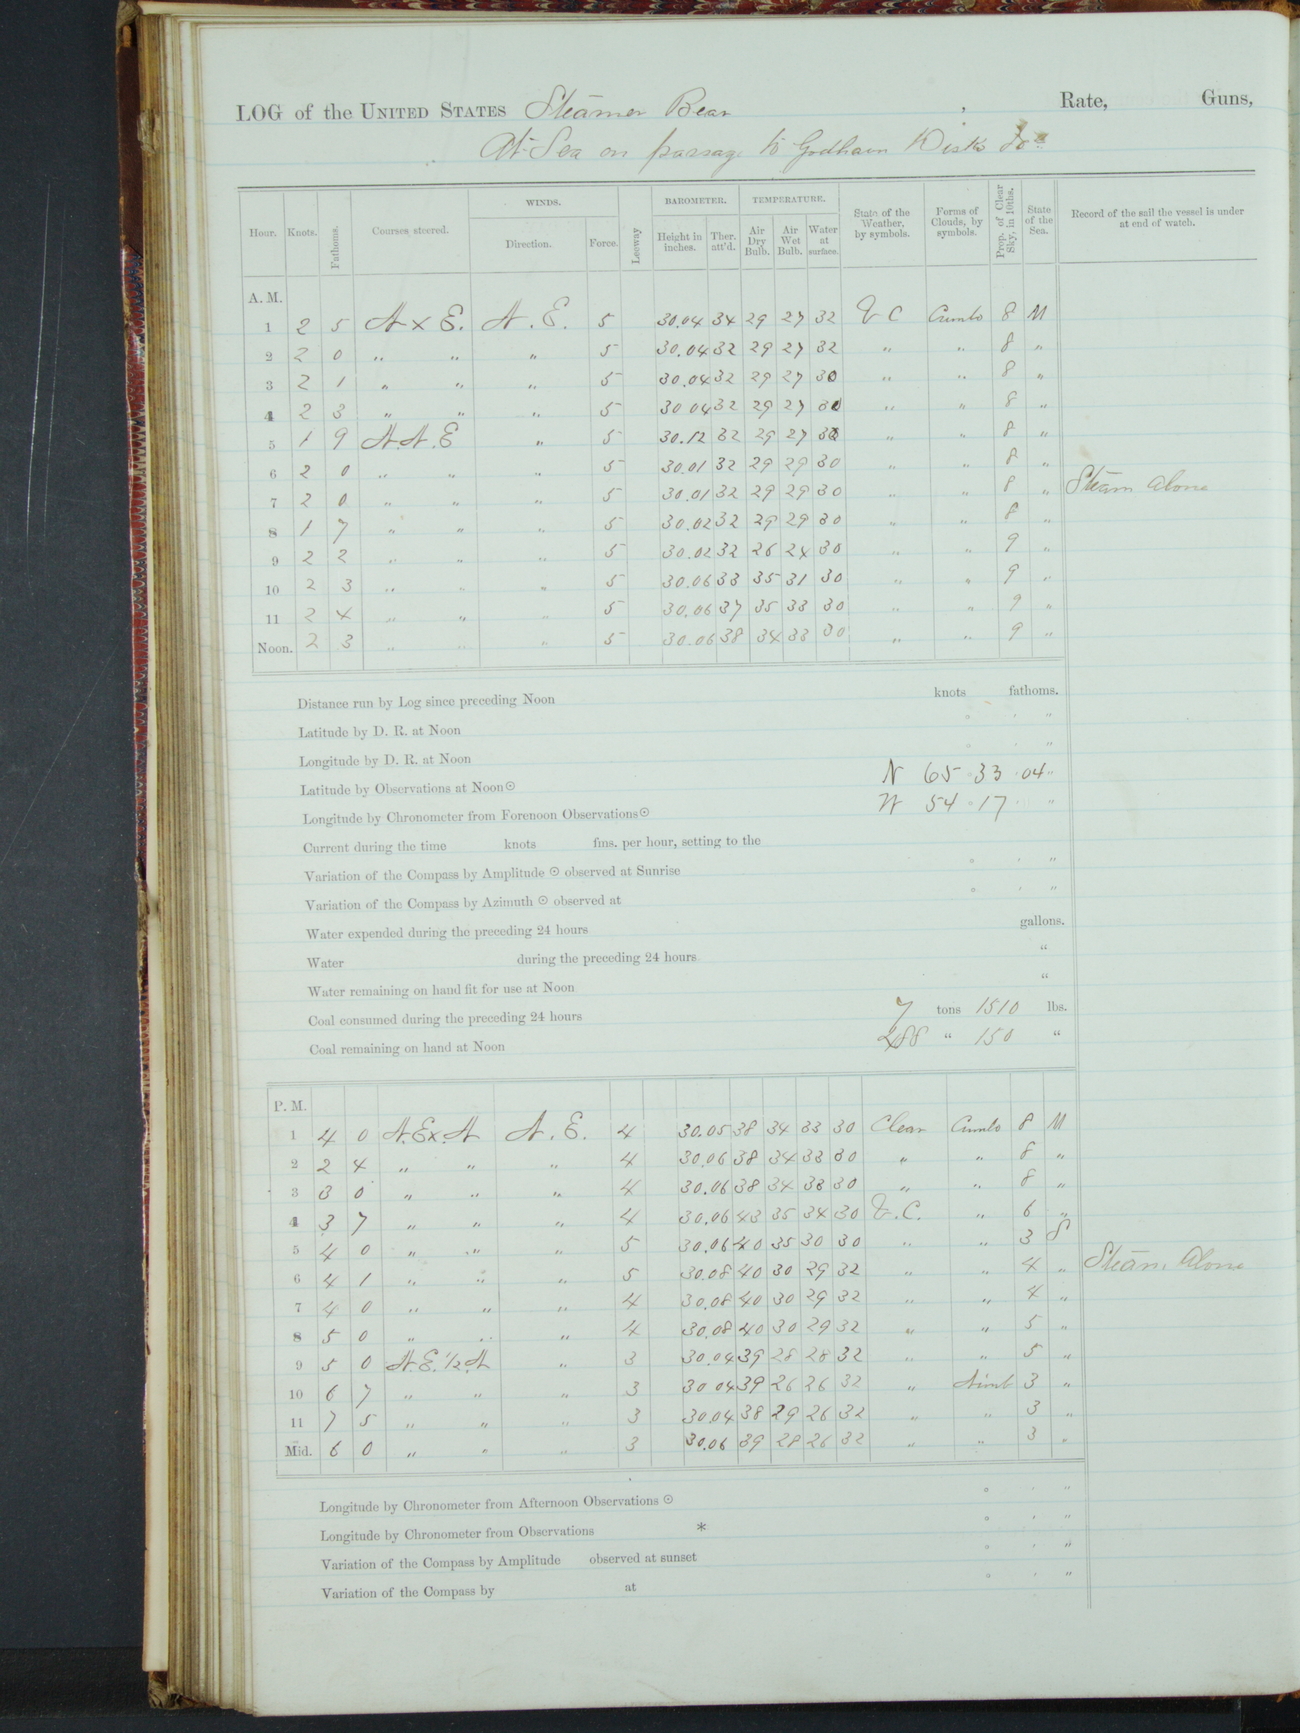 LOG of the UNITED STATES Steamer Bear , Rate, Guns,
At Sea on passage to Godhavn Disko
Hour. Knots. Fathoms. Courses steered. WINDS. Direction. Force. Leeway BAROMETER. Height in inches. Ther. att'd. TEMPERATURE. Air Dry Bulb. Air Wet Bulb. Water at surface. State of the Weather, by symbols. Forms of Clouds, by symbols. Prop. of Clear Sky, in 10ths. State of the Sea. Record of the sail the vessel is under at end of watch.
A. M.
1 2 5 N x E. N. E. 5 30.04 34 29 27 32 b C Cumlo 8 M
2 2 0 " " " 5 30.04 32 29 27 32 " " 8 "
3 2 1 " " " 5 30.04 32 29 27 30 " " 8 "
4 2 3 " " " 5 30 04 32 29 27 30 " " 8 "
5 1 9 N.N.E " 5 30.12 32 29 27 30 " " 8 "
6 2 0 " " " 5 30.01 32 29 29 30 " " 8 "
7 2 0 " " " 5 30.01 32 29 29 30 " " 8 " Steam alone
8 1 7 " " " 5 30.02 32 29 29 30 " " 8 "
9 2 2 " " " 5 30.02 32 26 24 30 " " 9 "
10 2 3 " " " 5 30.06 33 35 31 30 " " 9 "
11 2 4 " " " 5 30.06 37 35 33 30 " " 9 "
Noon. 2 3 " " " 5 30.06 38 34 33 30 " " 9 "
Distance run by Log since preceding Noon knots fathoms.
Latitude by D. R. at Noon ° ' "
Longitude by D. R. at Noon ° ' "
Latitude by Observations at Noon ☉ N 65 ° 33 ' 04 "
Longitude by Chronometer from Forenoon Observations ☉ W 54 ° 17 ' "
Current during the time knots fms. per hour, setting to the
Variation of the Compass by Amplitude ☉ observed at Sunrise ° ' "
Variation of the Compass by Azimuth ☉ observed at ° ' "
Water expended during the preceding 24 hours gallons.
Water during the preceding 24 hours "
Water remaining on hand fit for use at Noon "
Coal consumed during the preceding 24 hours 7 tons 1510 lbs.
Coal remaining on hand at Noon 288 " 150 "
P. M.
1 4 0 N.Ex.N N. E. 4 30.05 38 34 33 30 Clear Cumlo 8 M
2 2 4 " " " 4 30.06 38 34 33 30 " " 8 "
3 3 0 " " " 4 30.06 38 34 33 30 " " 8 "
4 3 7 " " " 4 30.06 43 35 34 30 b.C. " 6 "
5 4 0 " " " 5 30.06 40 35 30 30 " " 3 S
6 4 1 " " " 5 30.08 40 30 29 32 " " 4 " Steam Alone
7 4 0 " " " 4 30.08 40 30 29 32 " " 4 "
8 5 0 " " " 4 30.08 40 30 29 32 " " 5 "
9 5 0 N.E.½.N " 3 30.04 39 28 28 32 " " 5 "
10 6 7 " " " 3 30 04 39 26 26 32 " Nimb 3 "
11 7 5 " " " 3 30.04 38 29 26 32 " " 3 "
Mid. 6 0 " " " 3 30.06 39 28 26 32 " " 3 "
Longitude by Chronometer from Afternoon Observations ☉ ° ' "
Longitude by Chronometer from Observations * ° ' "
Variation of the Compass by Amplitude observed at sunset ° ' "
Variation of the Compass by at ° ' "